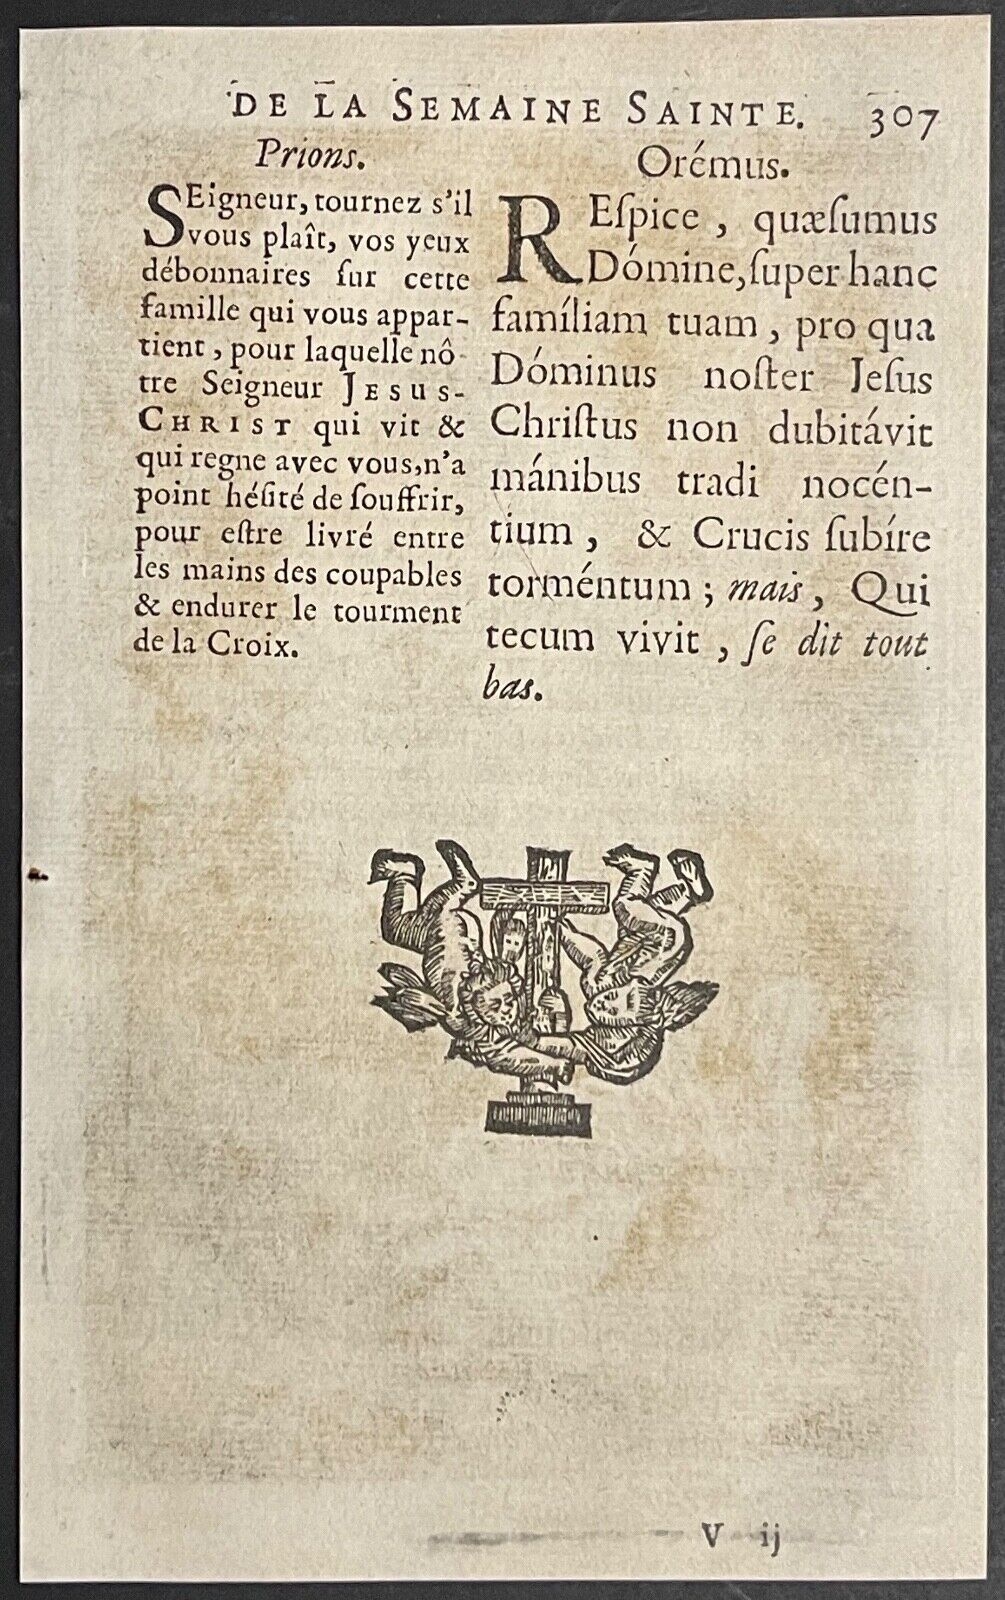 DE LA SEMAINE SAINTE. 307
Prions.
SEigneur, tournez s'il
vous plaît, vos yeux
débonnaires ſur cette
famille qui vous appar-
tient, pour laquelle nô-
tre Seigneur JESUS-
CHRIST qui vit &
qui regne avec vous, n'a
point héſité de ſouffrir,
pour eſtre livré entre
les mains des coupables
& endurer le tourment
de la Croix.
Orémus.
REſpice, quæſumus
Dómine, ſuper hanc
famíliam tuam, pro qua
Dóminus noſter Jeſus
Chriſtus non dubitávit
mánibus tradi nocén-
tium, & Crucis ſubíre
torméntum; mais, Qui
tecum vivit, ſe dit tout
bas.
V ij